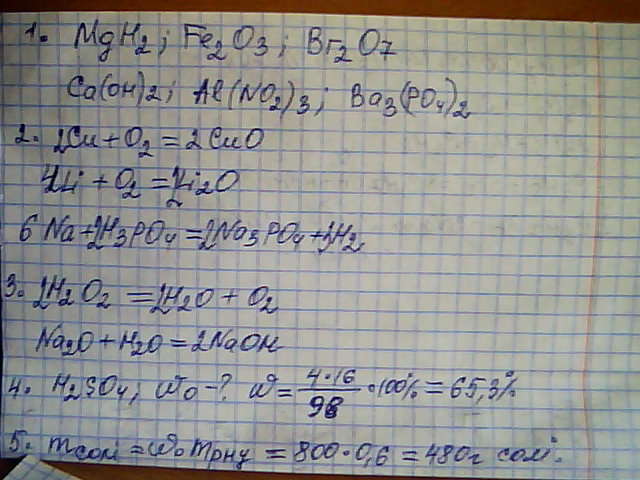 1. MgH2; Fe2O3; Br2O7
Ca(OH)2; Al(NO2)3; Ba3(PO4)2
2. 2Cu+O2=2CuO
4Li+O2=2Li2O
6Na+2H3PO4=2Na3PO4+3H2
3. 2H2O2=2H2O+O2
Na2O+H2O=2NaOH
4. H2SO4; Wo-? W=4·16/98·100%=65,3%
5. mсолі=W·mрну=800·0,6=480г солі.